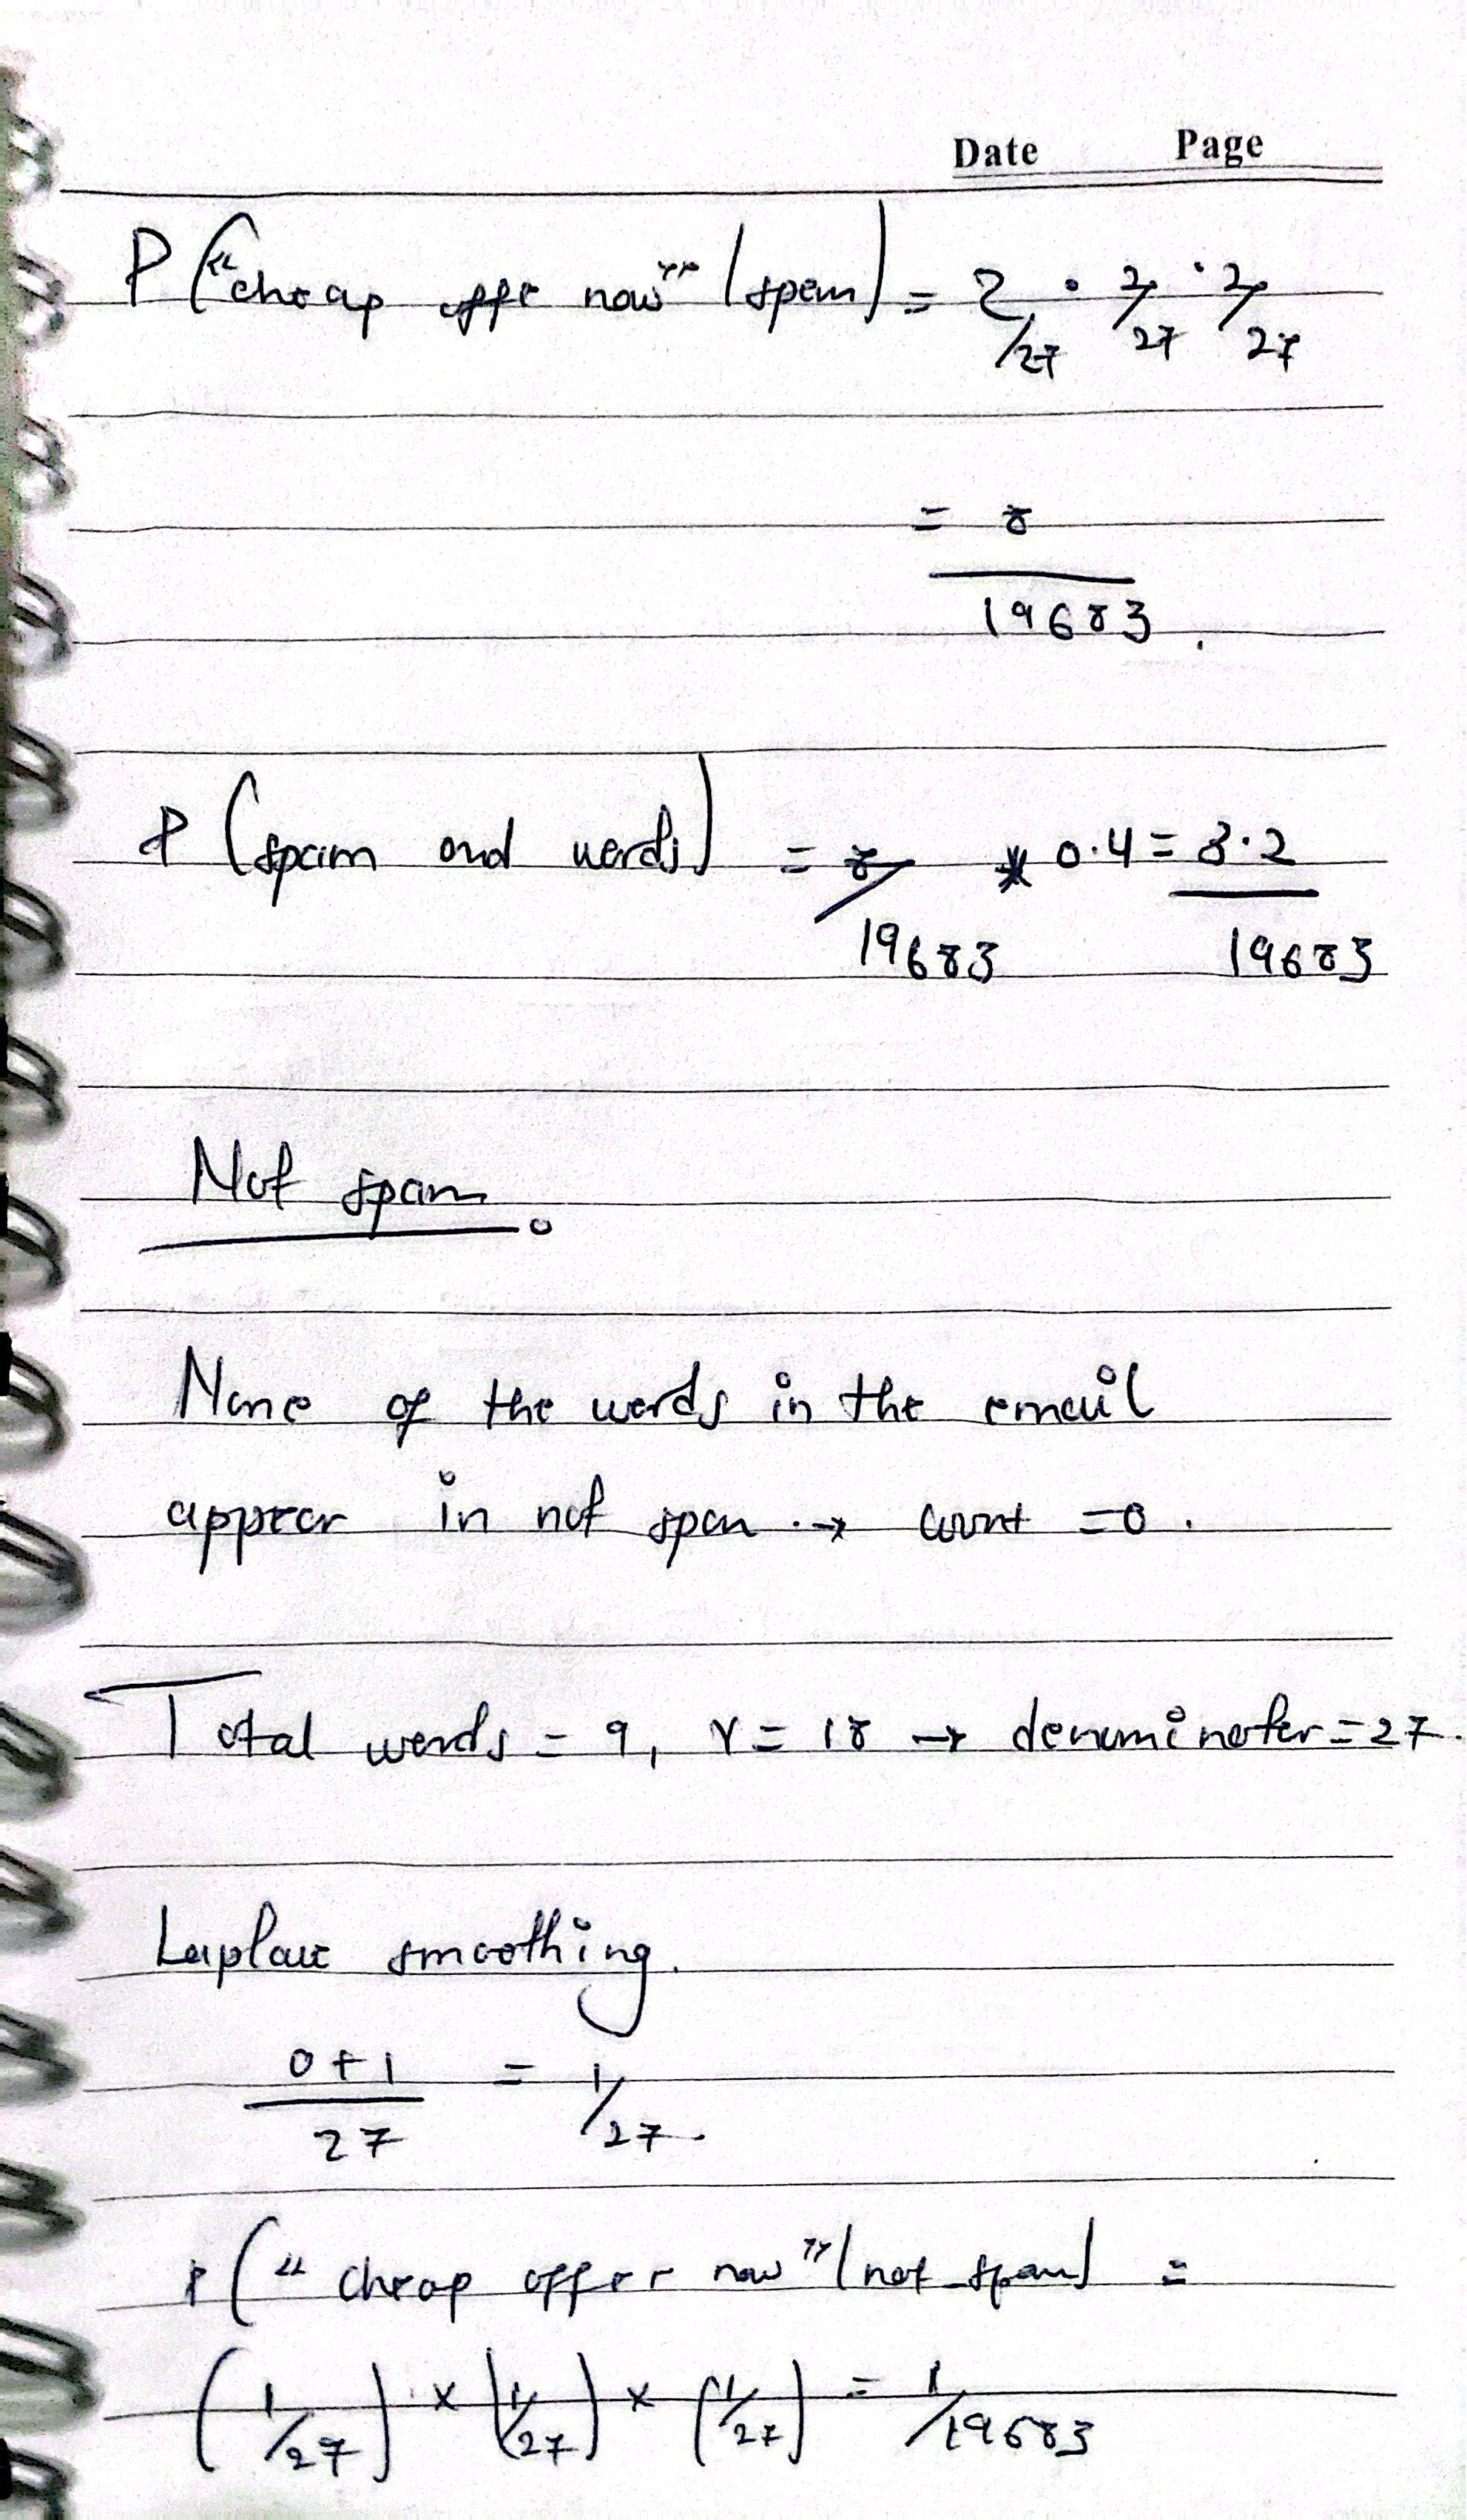 Date Page
P ("cheap offer now" | spam) = 2/27 · 2/27 · 2/27
= 8/19683.
P (spam and words) = 8/19683 * 0.4 = 3.2/19683
Not spam.
None of the words in the email
appear in not spam → count = 0.
Total words = 9, V = 18 → denominator = 27.
Laplace smoothing.
0+1/27 = 1/27.
P ("cheap offer now" | not spam) =
(1/27) × (1/27) × (1/27) = 1/19683